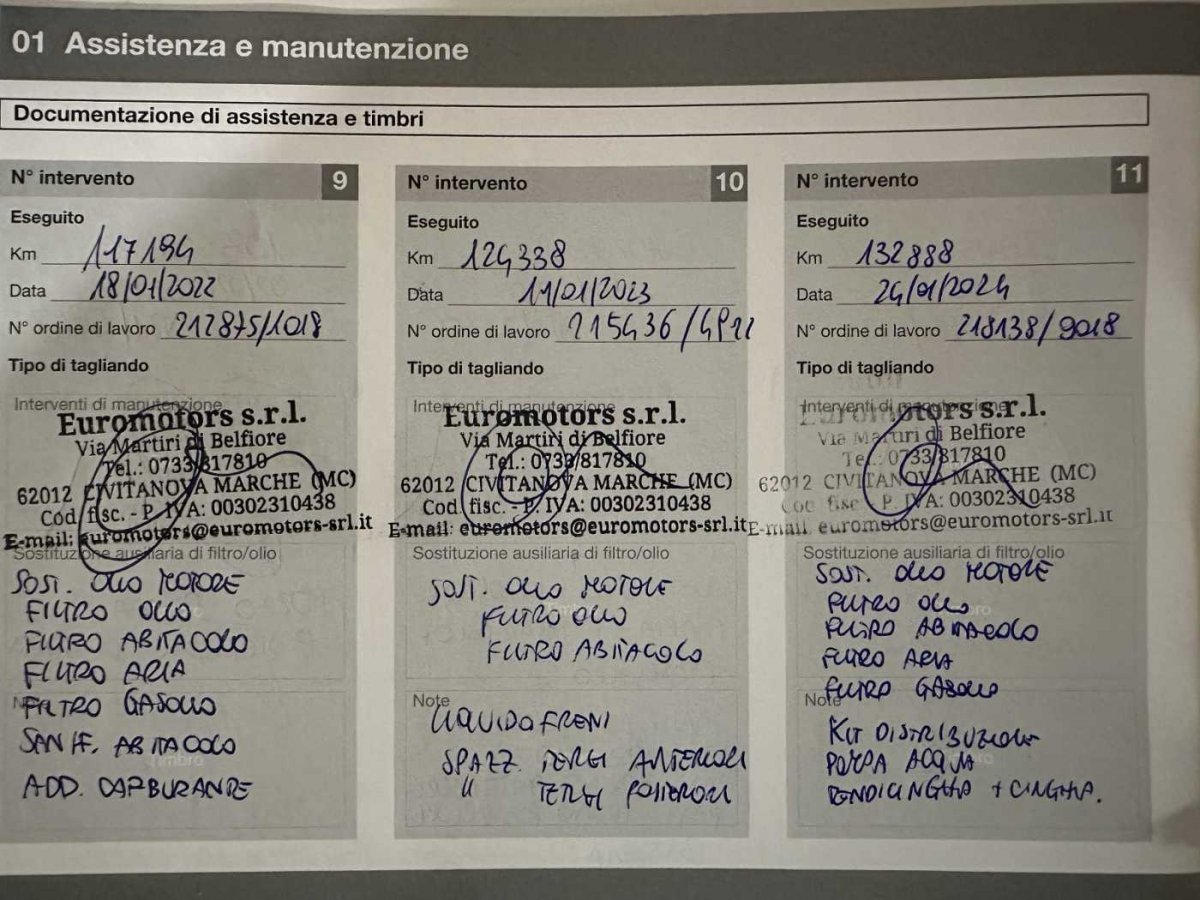 01 Assistenza e manutenzione
Documentazione di assistenza e timbri
N° intervento 9
Eseguito
Km 117194
Data 18/01/2022
N° ordine di lavoro 212875/1018
Tipo di tagliando
Interventi di manutenzione
Euromotors s.r.l.
Via Martiri di Belfiore
Tel.: 0733/817810
62012 CIVITANOVA MARCHE (MC)
Cod. fisc. - P. IVA: 00302310438
E-mail: euromotors@euromotors-srl.it
Sostituzione ausiliaria di filtro/olio
SOST. OLIO MOTORE
FILTRO OLIO
FILTRO ABITACOLO
FILTRO ARIA
FILTRO GASOLIO
SANIF. ABITACOLO
ADD. CARBURANTE
N° intervento 10
Eseguito
Km 124338
Data 11/01/2023
N° ordine di lavoro 215436/
Tipo di tagliando
Interventi di manutenzione
Euromotors s.r.l.
Via Martiri di Belfiore
Tel.: 0733/817810
62012 CIVITANOVA MARCHE (MC)
Cod. fisc. - P. IVA: 00302310438
E-mail: euromotors@euromotors-srl.it
Sostituzione ausiliaria di filtro/olio
SOST. OLIO MOTORE
FILTRO OLIO
FILTRO ABITACOLO
Note
LIQUIDO FRENI
SPAZZ. TERGI ANTERIORI
" TERGI POSTERIORI
N° intervento 11
Eseguito
Km 132888
Data 24/01/2024
N° ordine di lavoro 218138/9018
Tipo di tagliando
Interventi di manutenzione
Euromotors s.r.l.
Via Martiri di Belfiore
Tel.: 0733/817810
62012 CIVITANOVA MARCHE (MC)
Cod. fisc. - P. IVA: 00302310438
E-mail: euromotors@euromotors-srl.it
Sostituzione ausiliaria di filtro/olio
SOST. OLIO MOTORE
FILTRO OLIO
FILTRO ABITACOLO
FILTRO ARIA
FILTRO GASOLIO
Note
KIT DISTRIBUZIONE
POMPA ACQUA
TENDICINGHIA + CINGHIA.